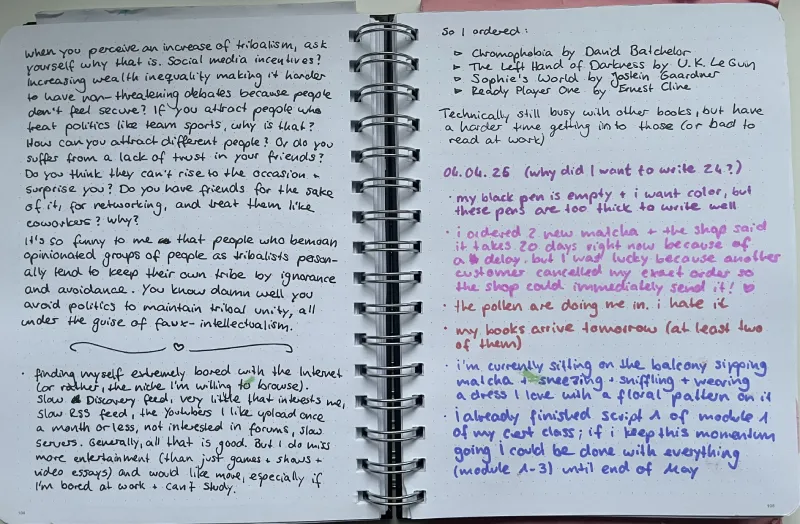 when you perceive an increase of tribalism, ask
yourself why that is. Social media incentives?
Increasing wealth inequality making it harder
to have non-threatening debates because people
don't feel secure? If you attract people who
treat politics like team sports, why is that?
How can you attract different people? Or do you
suffer from a lack of trust in your friends?
Do you think they can't rise to the occasion +
surprise you? Do you have friends for the sake
of it, for networking, and treat them like
coworkers? Why?
It's so funny to me that people who bemoan
opinionated groups of people as tribalists person-
ally tend to keep their own tribe by ignorance
and avoidance. You know damn well you
avoid politics to maintain tribal unity, all
under the guise of faux-intellectualism.
• finding myself extremely bored with the Internet
(or rather, the niche I'm willing to browse).
Slow Discovery feed, very little that interests me,
slow RSS feed, the Youtubers I like upload once
a month or less, not interested in forums, slow
servers. Generally, all that is good. But I do miss
more entertainment (than just games + shows +
video essays) and would like more, especially if
I'm bored at work + can't study.
So I ordered:
▻ Chromophobia by David Batchelor
▻ The Left Hand of Darkness by U.K. Le Guin
▻ Sophie's World by Jostein Gaardner
▻ Ready Player One by Ernest Cline
Technically still busy with other books, but have
a harder time getting into those (or bad to
read at work)
04.04.26 (why did I want to write 24?)
• my black pen is empty + i want color, but
these pens are too thick to write well
• i ordered 2 new matcha + the shop said
it takes 20 days right now because of
a delay. but I was lucky because another
customer cancelled my exact order so
the shop could immediately send it! ♡
• the pollen are doing me in. i hate it
• my books arrive tomorrow (at least two
of them)
• i'm currently sitting on the balcony sipping
matcha + sneezing + sniffling + wearing
a dress I love with a floral pattern on it
• i already finished script 1 of module 1
of my cert class; if i keep this momentum
going I could be done with everything
(module 1-3) until end of May